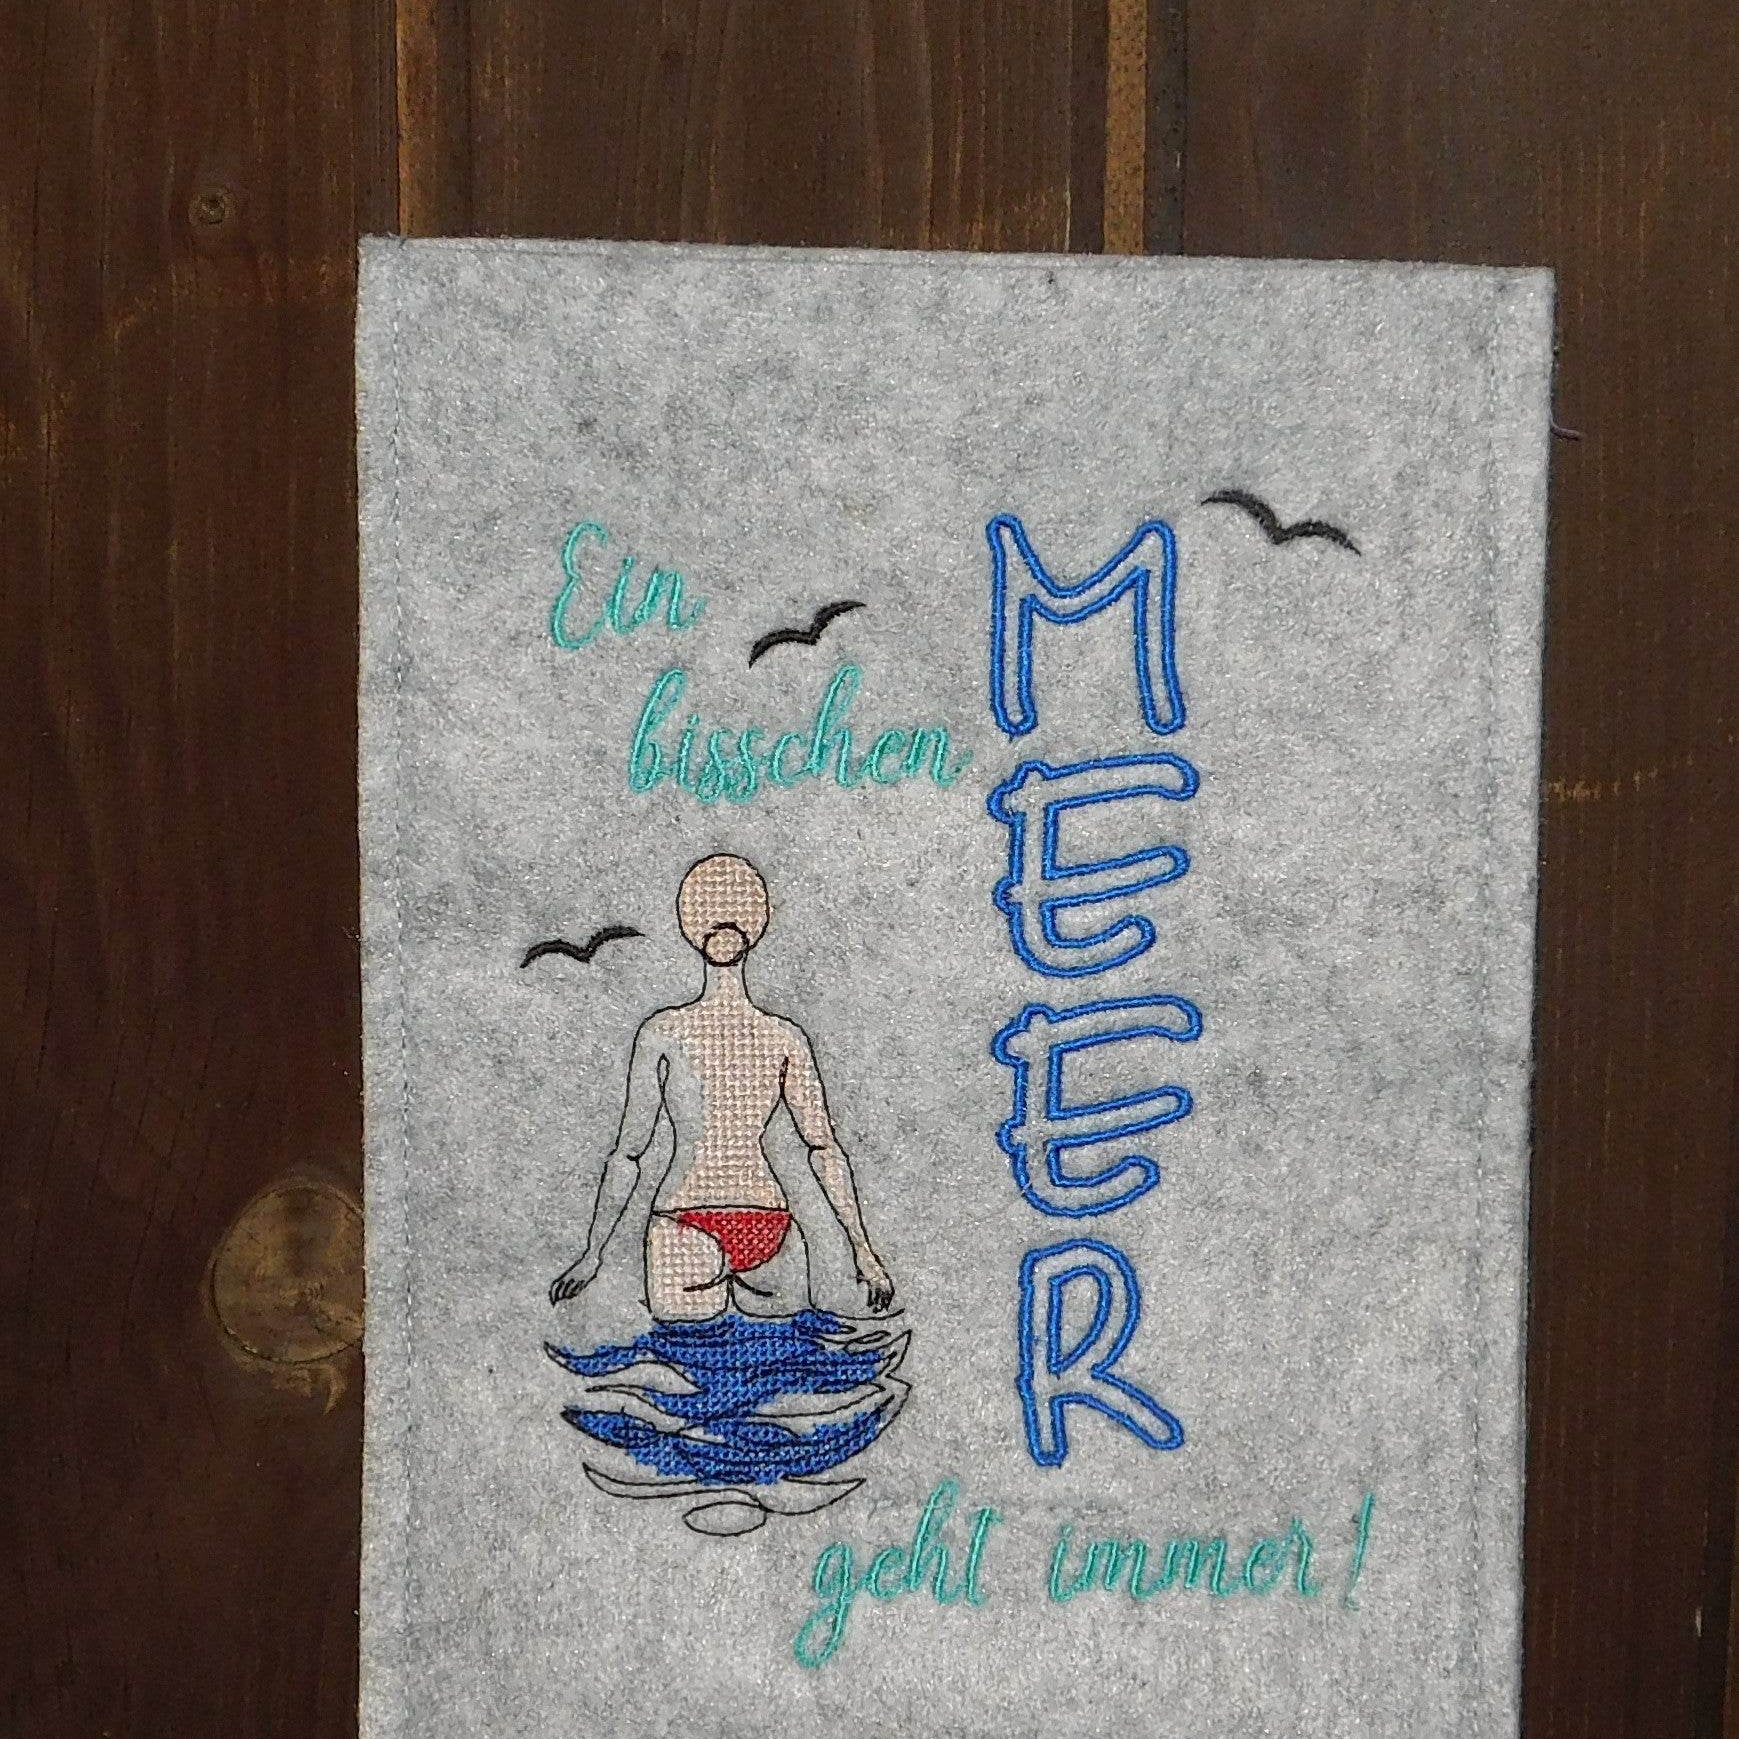 Ein
bisschen
MEER
geht immer!